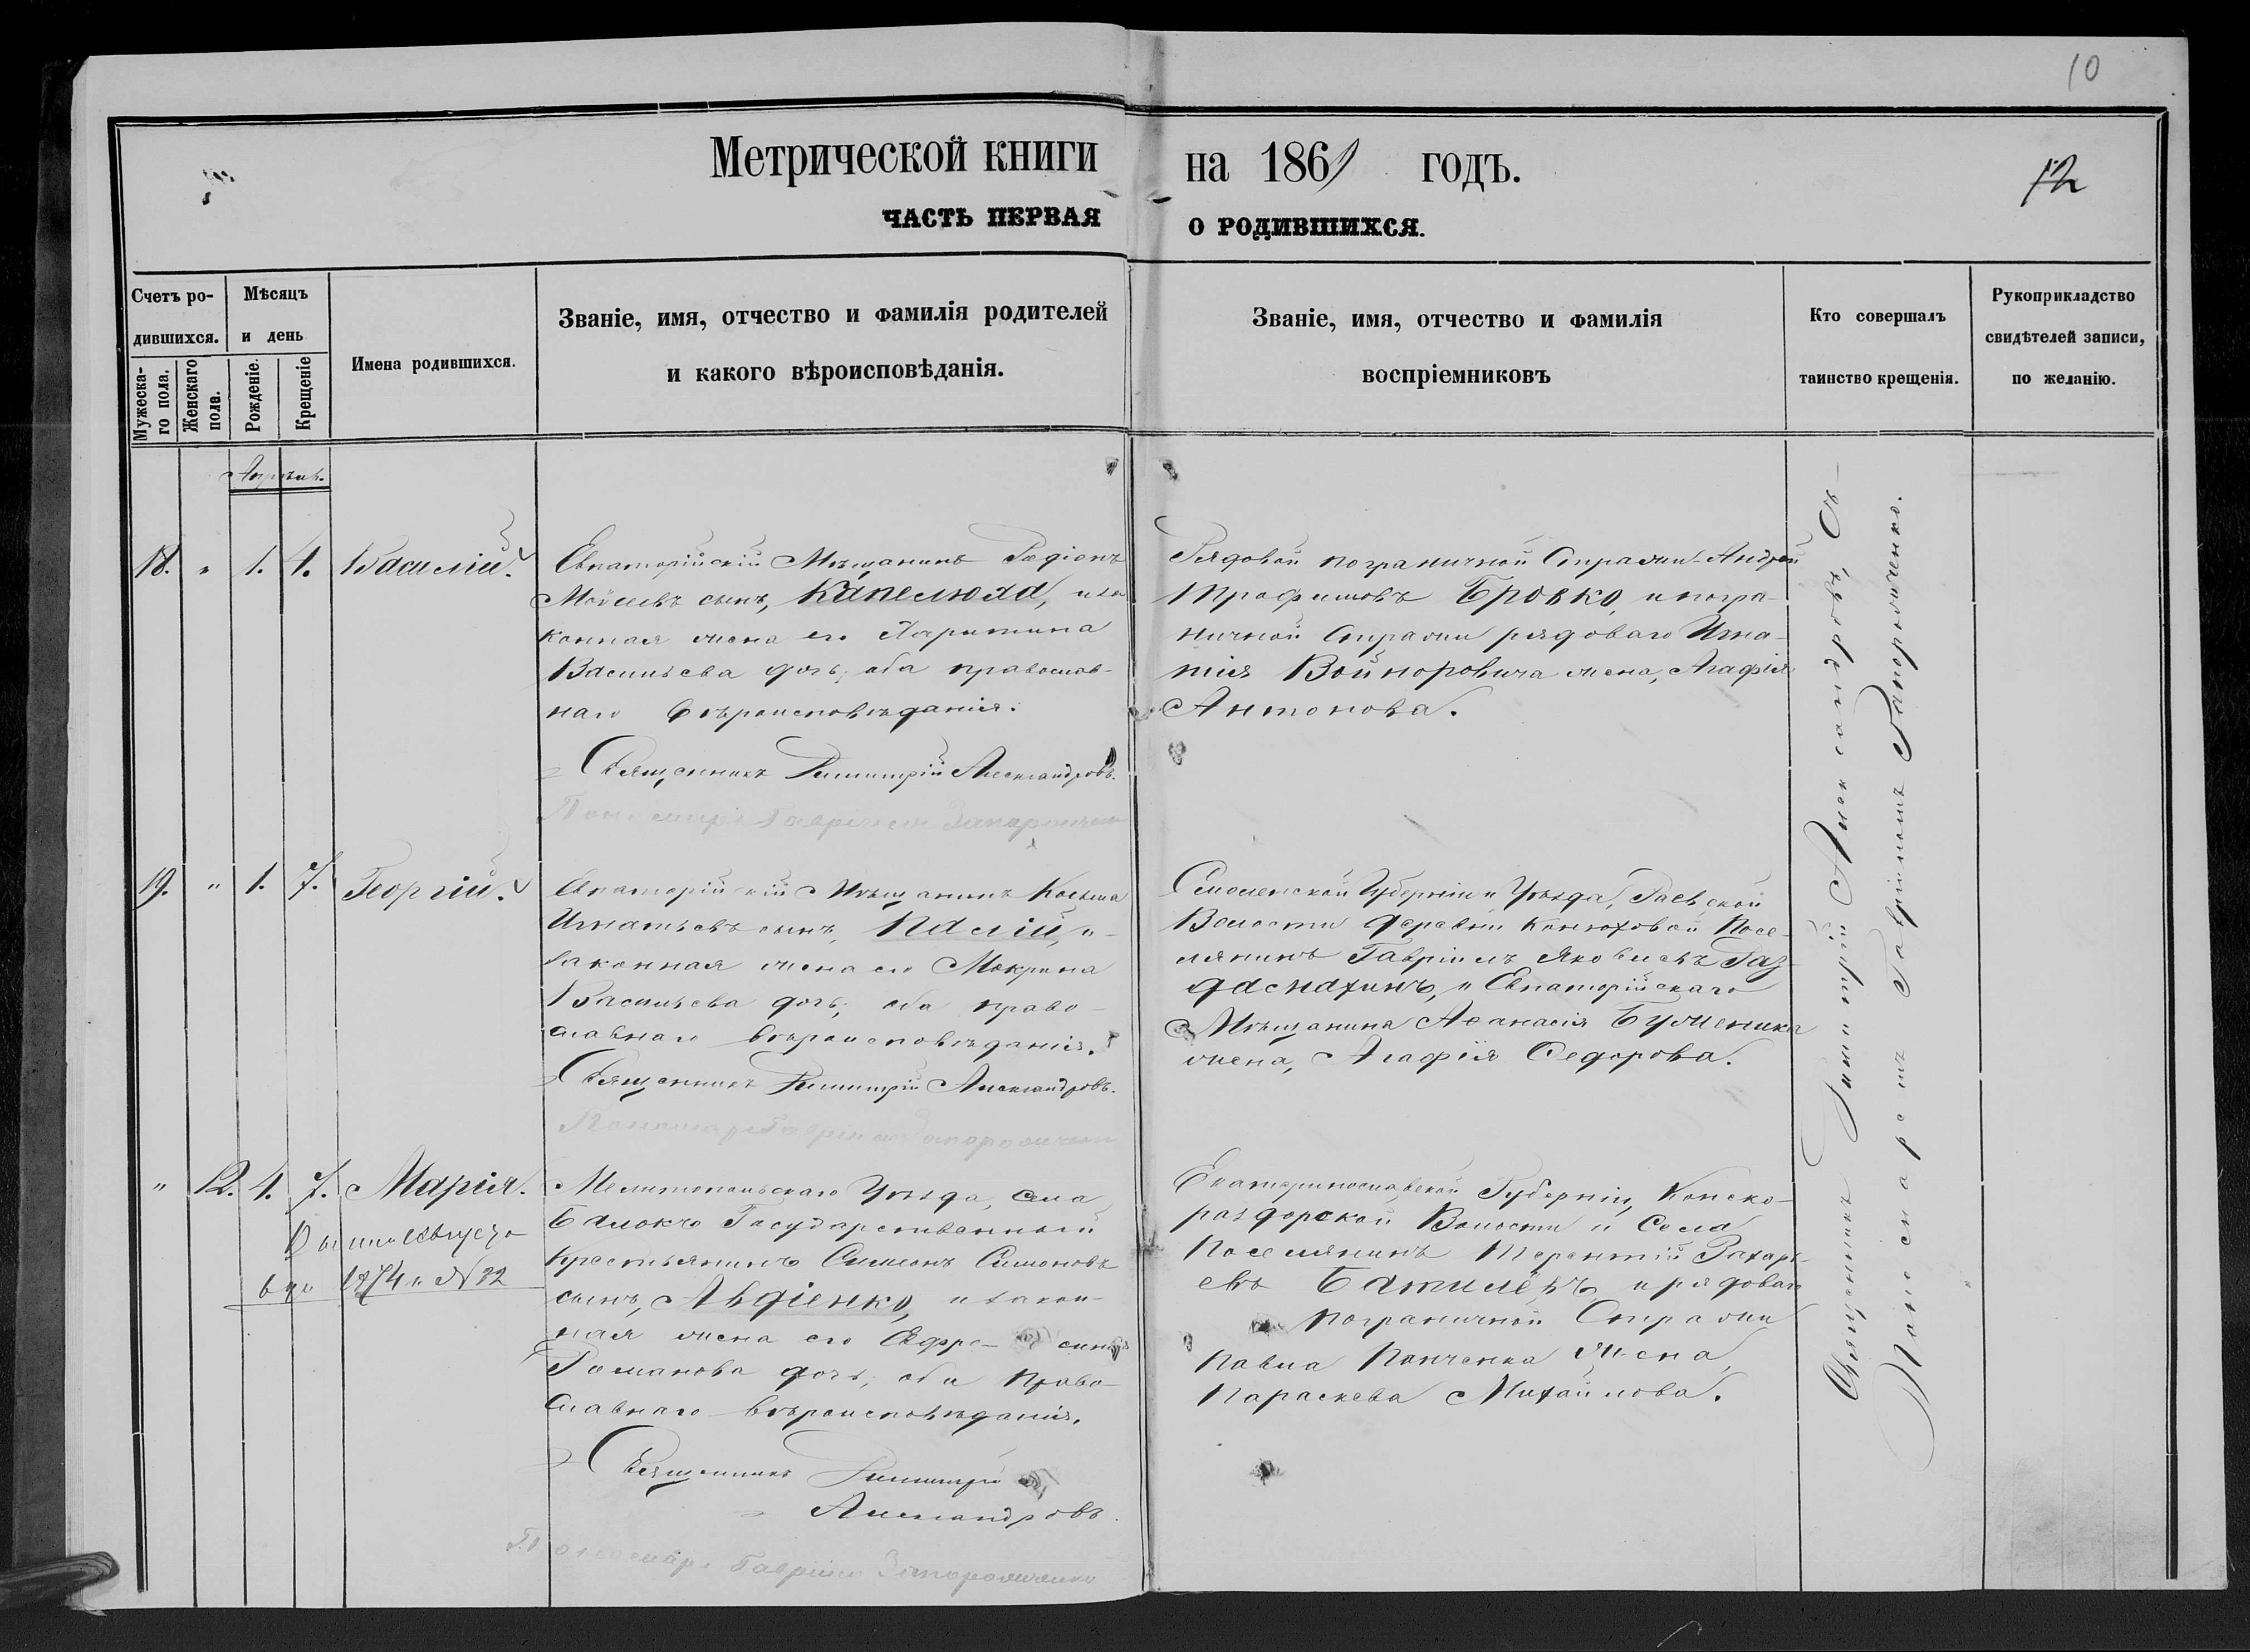 10
Метрической книги на 1861 годъ.
12
ЧАСТЬ ПЕРВАЯ О РОДИВШИХСЯ.
Счетъ ро-
дившихся.
Мужеска-
го пола.
Женскаго
пола.
Мѣсяцъ
и день
Рожденіе.
Крещеніе
Имена родившихся.
Званіе, имя, отчество и фамилія родителей
и какого вѣроисповѣданія.
Званіе, имя, отчество и фамилія
воспріемниковъ
Кто совершалъ
таинство крещенія.
Рукоприкладство
свидѣтелей записи,
по желанію.
Апрѣль.
18. " 1. 4. Василій.
Евпаторійскій Мѣщанинъ Родіонъ
Моисеевъ сынъ, Капелюха, и за
конная жена его Харитина
Васильева дочь; оба православ-
наго вѣроисповѣданія.
Священникъ Димитрій Александровъ.
Пономарь Гавріилъ Запорожченко
Рядовой пограничной Стражи Андрей
Трофимовъ Бровко, и погра-
ничной Стражи рядоваго Игна-
тія Войноровича жена, Агафія
Антонова.
19. " 1. 7. Георгій.
Евпаторійскій Мѣщанинъ Косьма
Игнатьевъ сынъ, Палій, и
законная жена его Макрина
Васильева дочь; оба право-
славнаго вѣроисповѣданія.
Священникъ Димитрій Александровъ.
Пономарь Гавріилъ Запорожченко
Смоленской Губерніи и Уѣзда,
Волости деревни Конюховой Посе-
лянинъ Гавріилъ Яковлевъ
и Евпаторійскаго
Мѣщанина Аѳанасія Буженика
жена, Агафія Ѳедорова.
" 12. 1. 7. Марія.
6 дня 1874 г. N 82
Мелитопольскаго Уѣзда, Села
Балокъ Государственный
Крестьянинъ Симеонъ Симоновъ
сынъ, Авдіенко, и закон-
ная жена его Евфро-синія
Романова дочь; оба право-
славнаго вѣроисповѣданія.
Священникъ Димитрій
Александровъ.
Пономарь Гавріилъ Запорожченко
Екатеринославской Губерніи, Конско-
раздорской Волости и Села
Поселянинъ Терентій Захарь-
евъ и рядоваго
пограничной Стражи
Павла Панченка жена,
Параскева Михайлова.
Священникъ Димитрій Александровъ, Съ-
Пономаремъ Гавріиломъ Запорожченко.